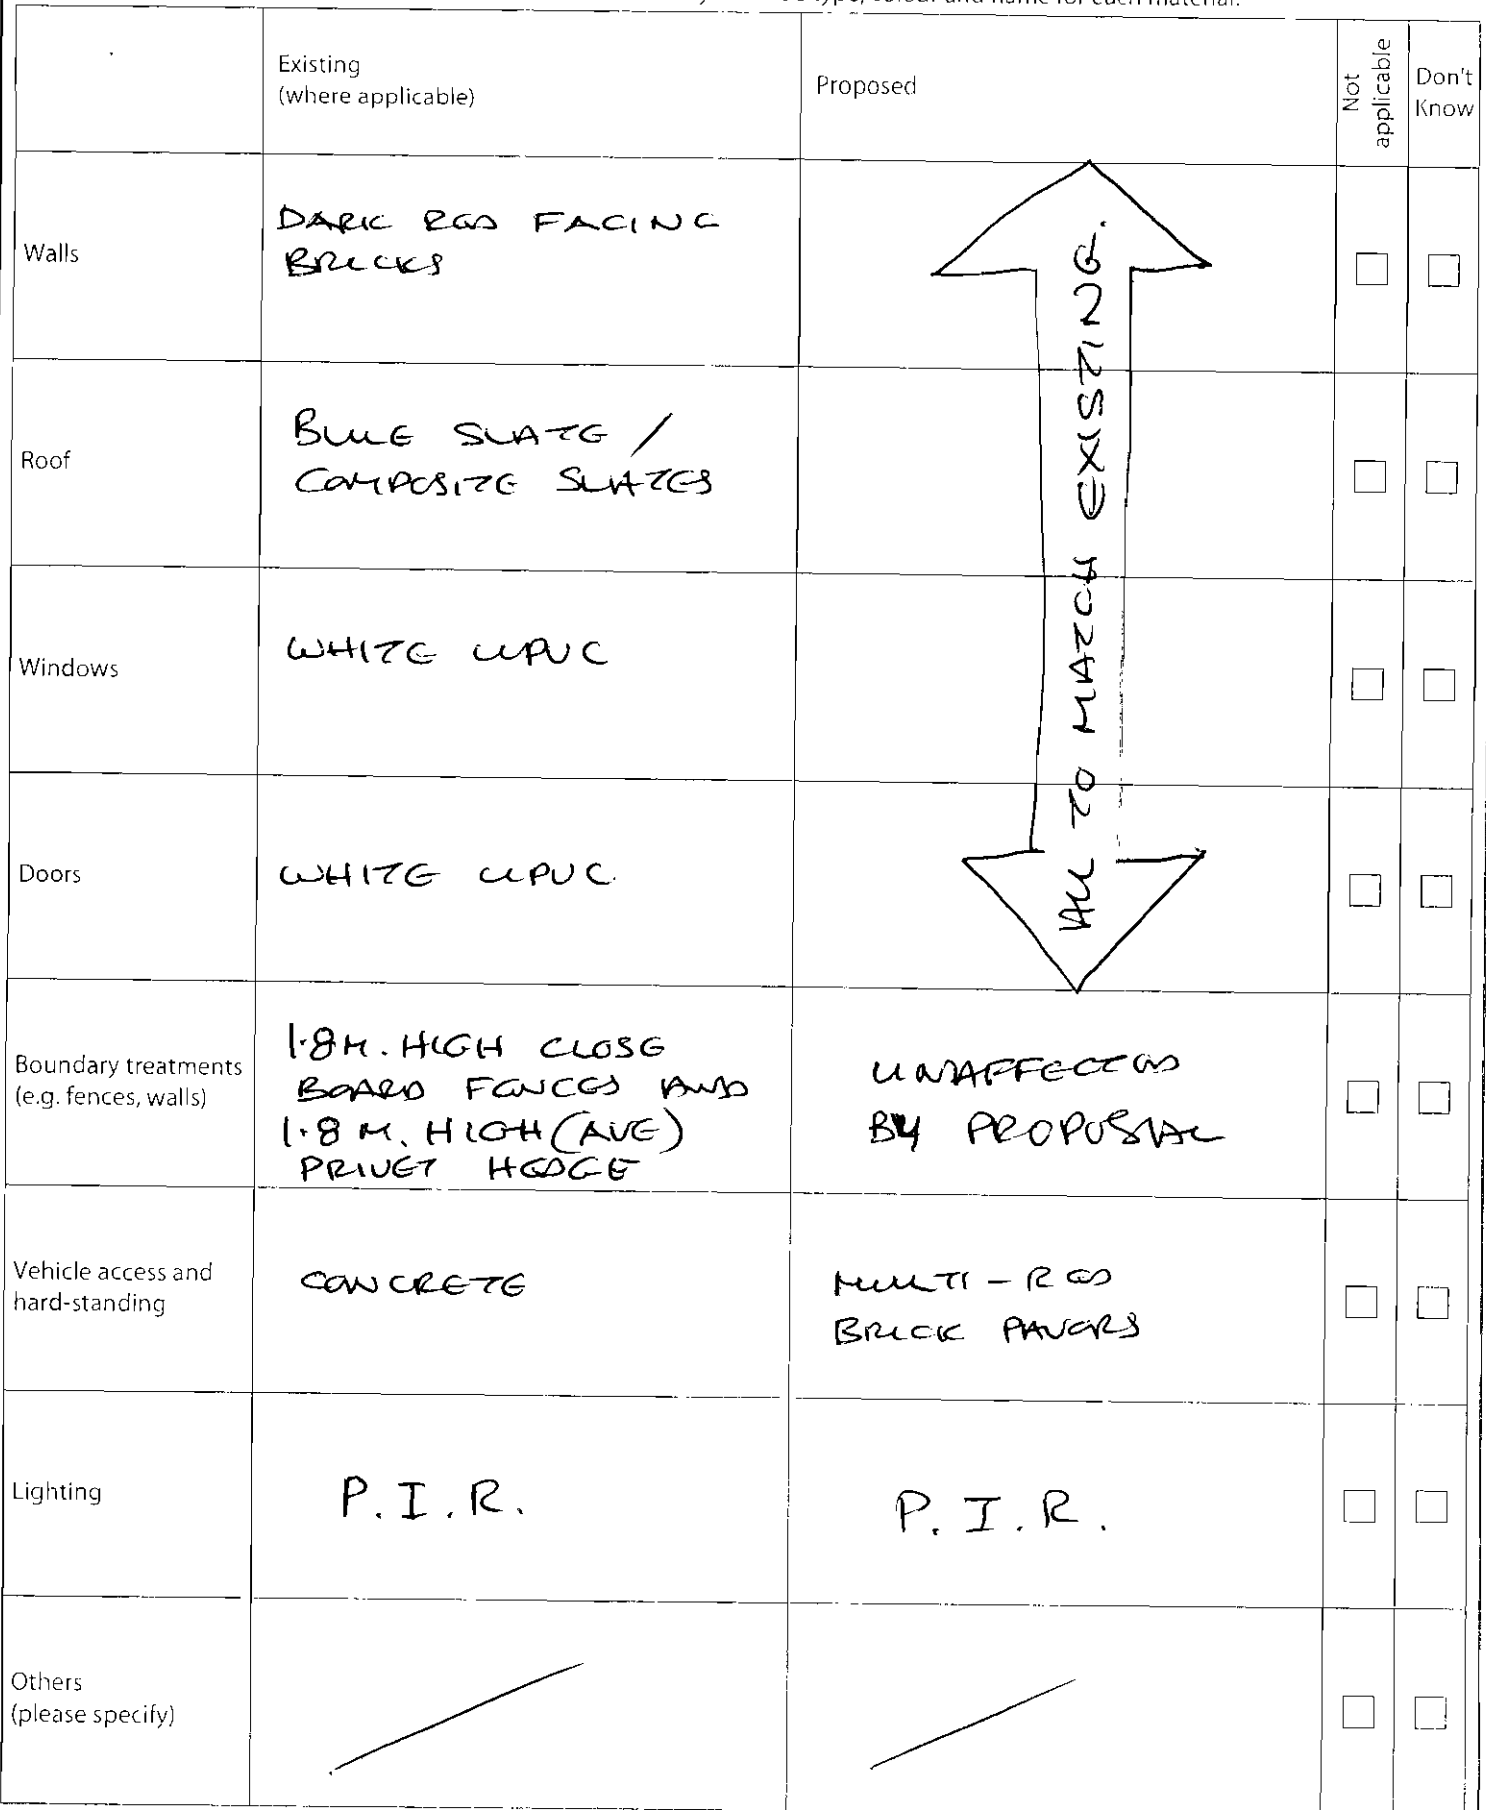 type, colour and name for each material.
Existing
(where applicable)
Proposed
Not
applicable
Don't
Know
Walls
DARK RED FACING
BRICKS
ALL TO MATCH EXISTING.
Roof
BLUE SLATE /
COMPOSITE SLATES
Windows
WHITE UPVC
Doors
WHITE UPVC.
Boundary treatments
(e.g. fences, walls)
1.8M. HIGH CLOSE
BOARD FENCES AND
1.8 M. HIGH (AVE)
PRIVET HEDGE
UNAFFECTED
BY PROPOSAL
Vehicle access and
hard-standing
CONCRETE
MULTI-RED
BRICK PAVERS
Lighting
P.I.R.
P.I.R.
Others
(please specify)